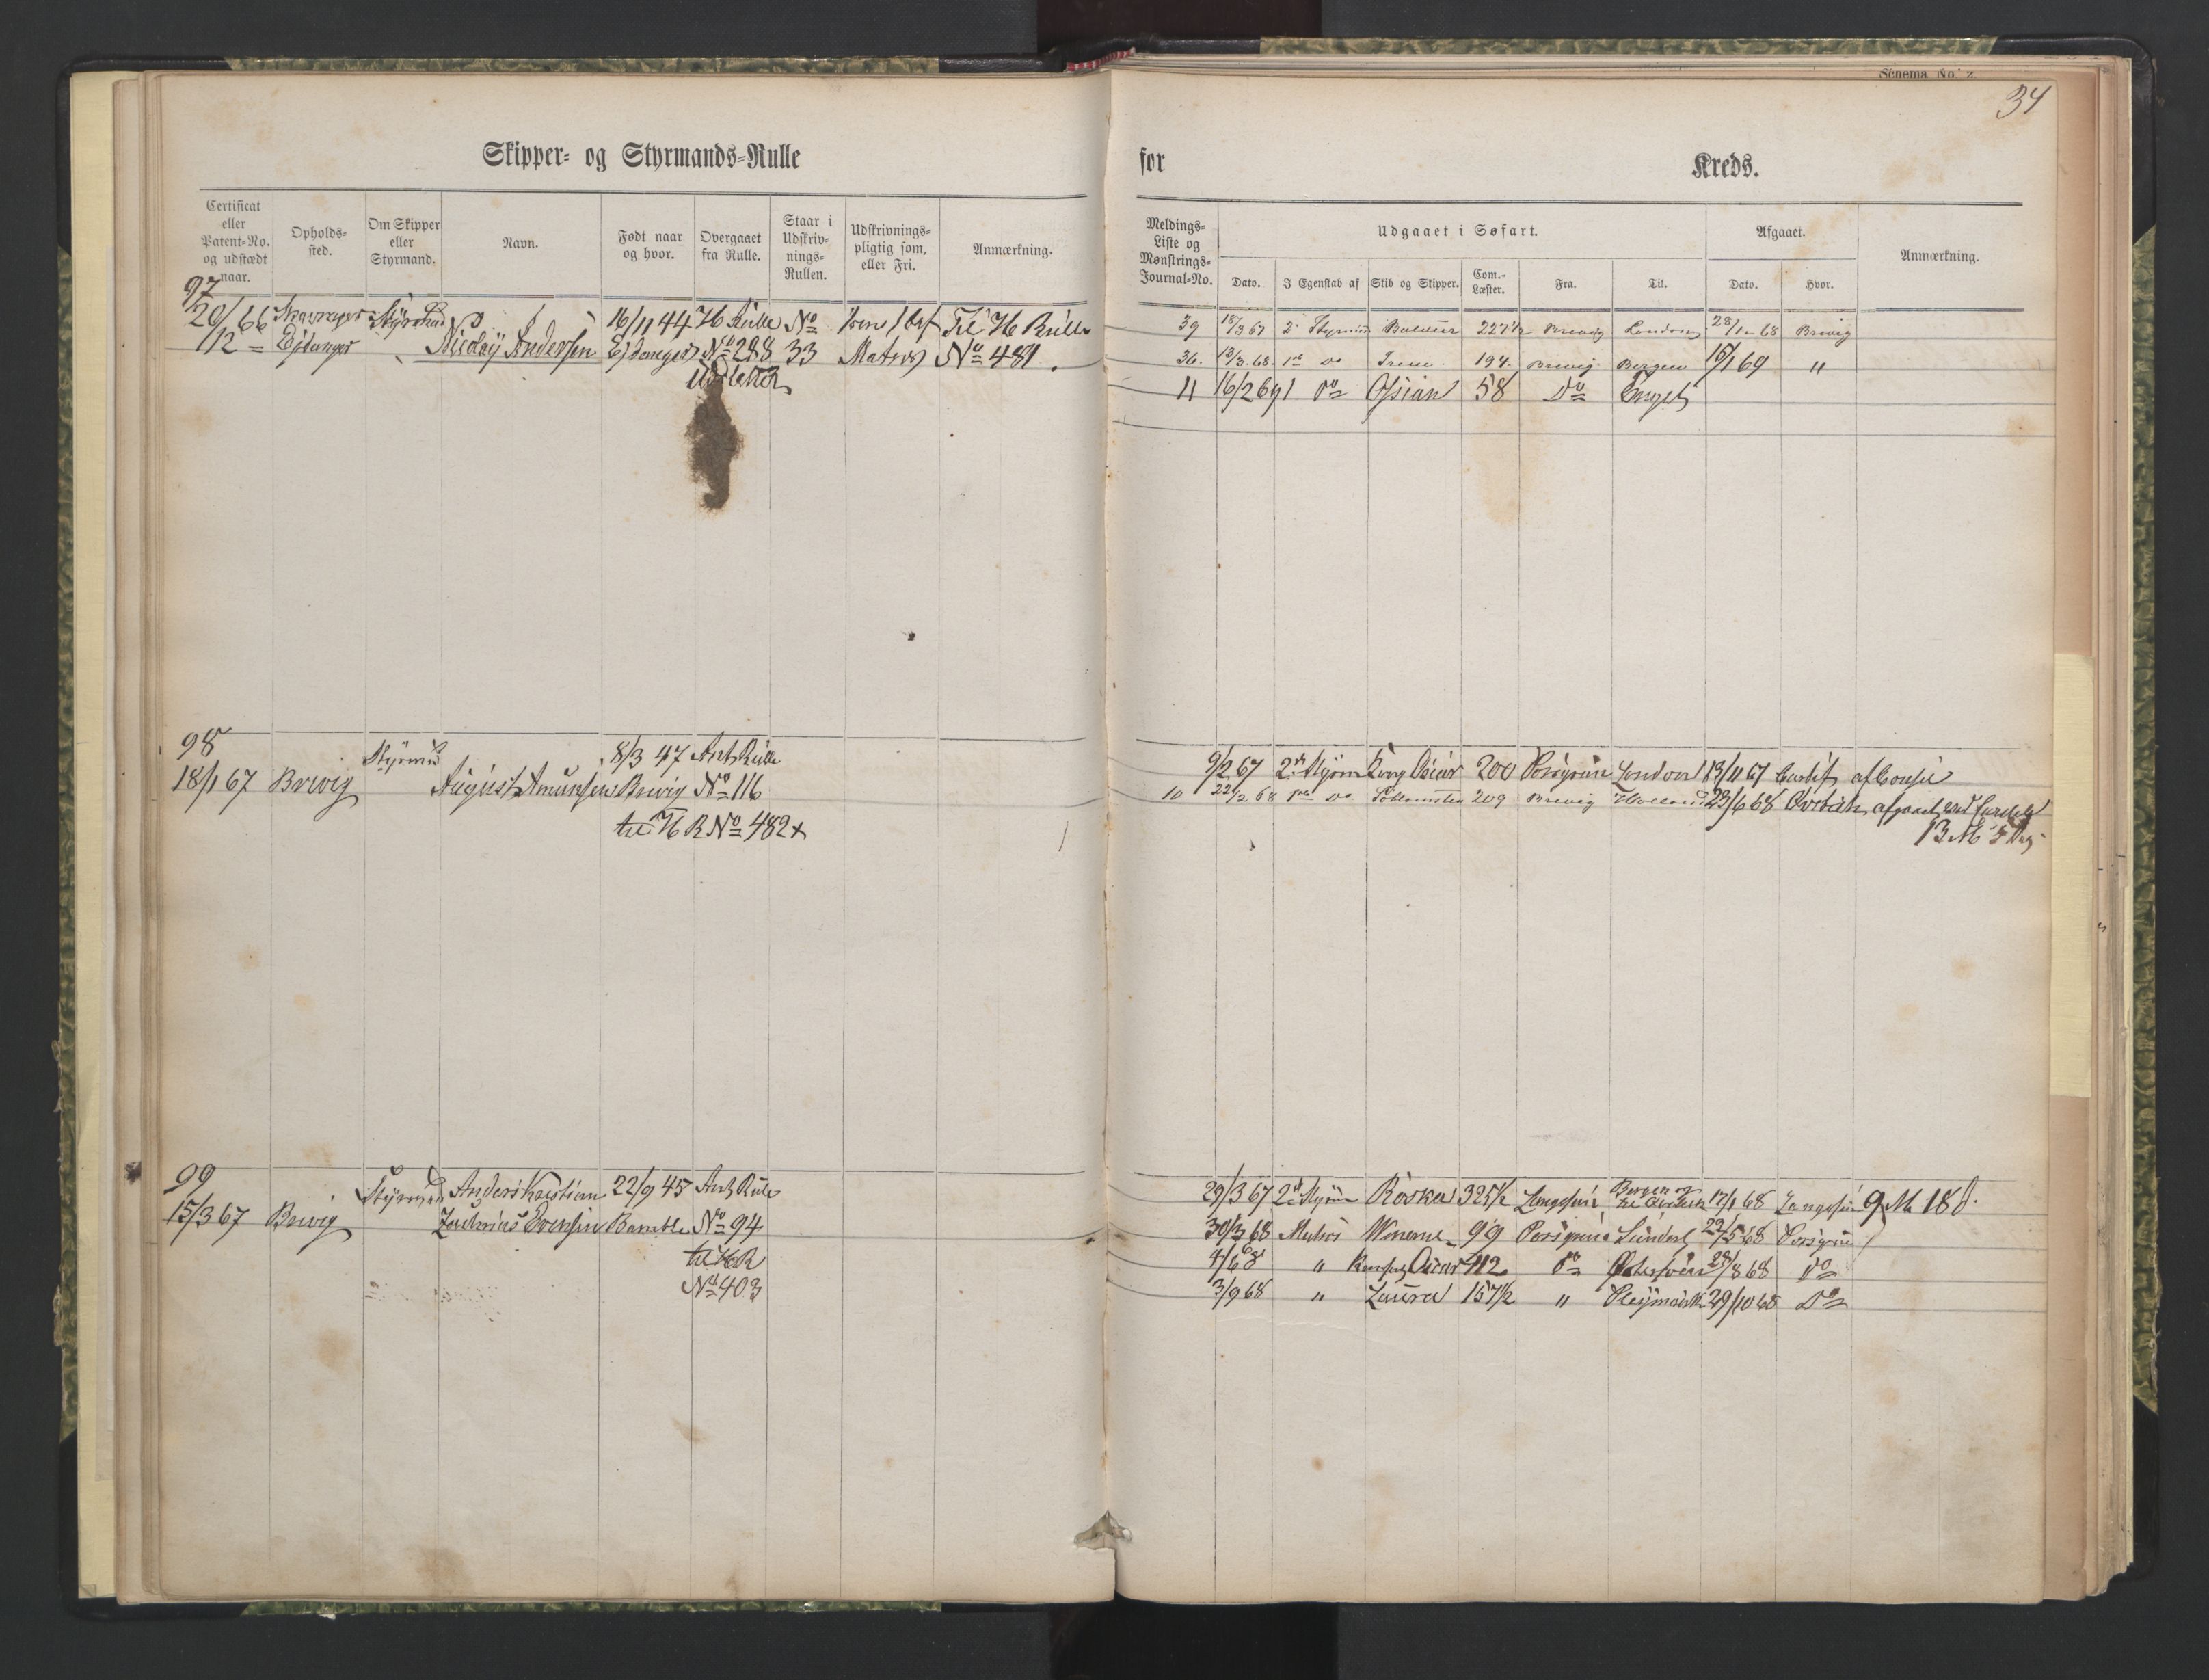 Skipper- og Styrmands-Rulle
Certificat eller Patent-No. og udstædt naar.
Opholds-sted.
Om Skipper eller Styrmand.
Navn.
Født naar og hvor.
Overgaaet fra Rulle.
Staar i Udskriv-nings-Rullen.
Udskrivnings-pligtig som, eller Fri.
Anmærkning.
97
20/12 66
Eidanger
Styrmand
Nicolay Andersen
16/11 44 Eidanger
H Rulle No 288
Udslettet
No 33
Matros
Til H Rulle No 481.
98
18/1 67 Brevig
Styrmd
August Amundsen
8/3 47 Brevig
Ant Rulle No 116
til H R No 482
99
15/3 67 Brevig
Styrmd
Anders Kristian
Zacharias Evensen
22/9 45 Bamble
Ant Rulle No 94
til HR
No 403
34
for Kreds.
Meldings-Liste og Mønstrings-Journal-No.
Udgaaet i Søfart.
Dato.
I Egenskab af
Skib og Skipper.
Com.-Læster.
Fra.
Til.
Afgaaet.
Dato.
Hvor.
Anmærkning.
39 18/3 67 2 Styrm 227 1/2 Brevig London 28/1 68 Brevig
36. 13/3. 68. 1ste Do Irene 194. Brevig Bergen 15/1 69 "
11 16/2 69 1 Do Ossian 58 Do
9/2 67 2 Styrm Kong Oscar 200 Porsgrund London 13/11 67 Cardif
10 22/2 68 1ste Do. 209 Brevig Holland 23/6 68 afgaaet
13 M 5 Dag
29/3 67 2 Styrm Roska 325 1/2 Langesund Bergen og til 17/1 68 Langesund 9 M 18 d.
30/3 68 Matros 99 Porsgrund Sunderl 23/5 68 Porsgrund
4/6 68 " Oscar 112 Do 28/8 68 Do
3/9 68 " Laura 157 1/2 " 29/10 68 Do